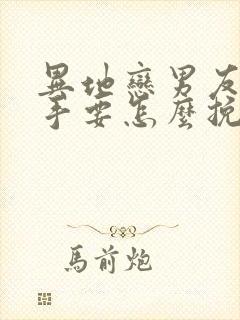 異地戀男友
手要怎麼挽
馬前炮